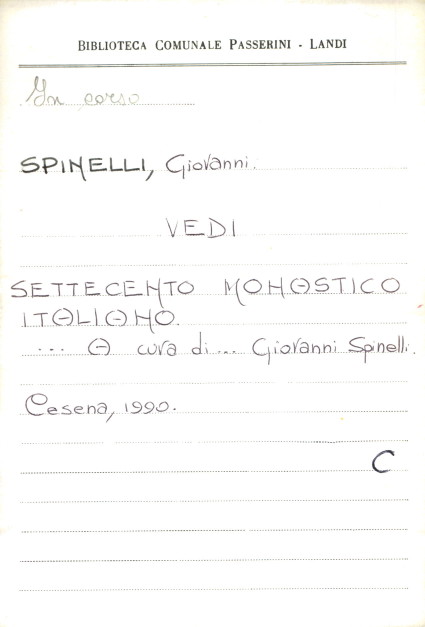 BIBLIOTECA COMUNALE PASSERINI - LANDI
In corso
SPINELLI, Giovanni.
VEDI
SETTECENTO MONASTICO
ITALIANO.
... A cura di... Giovanni Spinelli.
Cesena, 1990.
C